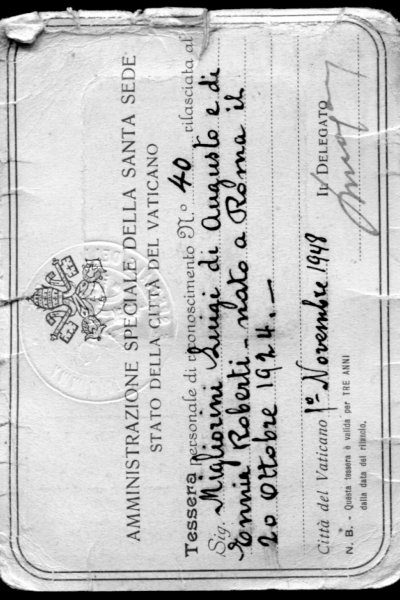 AMMINISTRAZIONE SPECIALE DELLA SANTA SEDE
STATO DELLA CITTÀ DEL VATICANO
Tessera personale di riconoscimento N.º 40 rilasciata al
Sig. Migliorini Luigi di Augusto e di
Ennia Roberti - nato a Roma il
20 Ottobre 1924. -
Città del Vaticano 1º Novembre 1948
IL DELEGATO
N. B. - Questa tessera è valida per TRE ANNI
dalla data del rilascio.